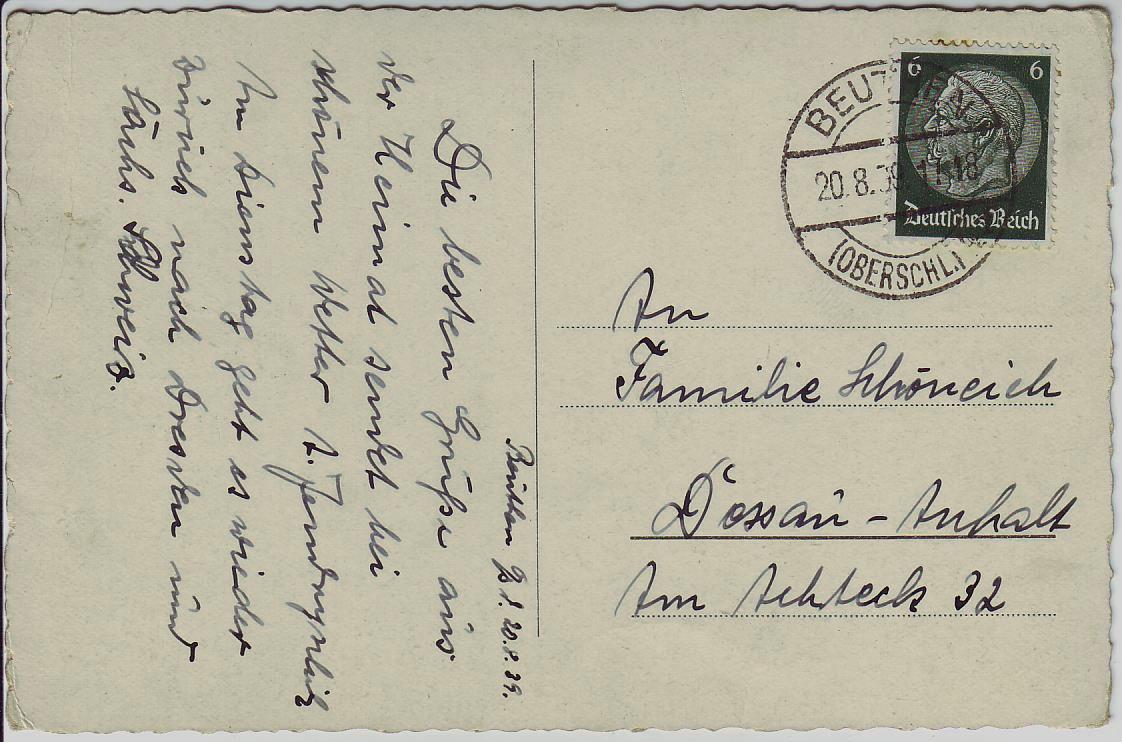 Beuthen 20.8.39.
Die besten Grüße aus
der Heimat sendet bei
schönem Wetter
Am Dienstag geht es wieder
zurück nach Dresden und
Sächs. Schweiz.
6 6
Deutsches Reich
BEUTHEN
20.8.39.17-18
(OBERSCHL.)
An
Familie Schöneich
Dessau - Anhalt
Am Achteck 32